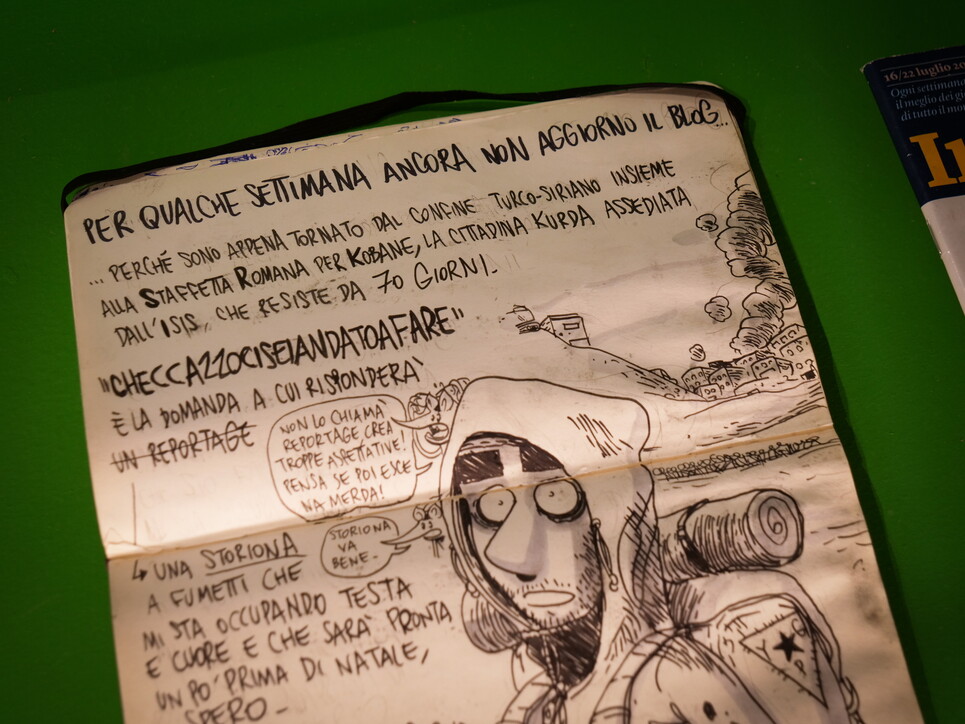 PER QUALCHE SETTIMANA ANCORA NON AGGIORNO IL BLOG...
... PERCHÉ SONO APPENA TORNATO DAL CONFINE TURCO-SIRIANO INSIEME
ALLA STAFFETTA ROMANA PER KOBANE, LA CITTADINA KURDA ASSEDIATA
DALL'ISIS, CHE RESISTE DA 70 GIORNI.
"CHECCAZZOCISEIANDATOAFARE"
È LA DOMANDA A CUI RISPONDERÀ
UN REPORTAGE
NON LO CHIAMÀ
REPORTAGE, CREA
TROPPE ASPETTATIVE!
PENSA SE POI ESCE
NA MERDA!
STORIONA
VA
BENE-
UNA STORIONA
A FUMETTI CHE
MI STA OCCUPANDO TESTA
E CUORE E CHE SARÀ PRONTA
UN PO' PRIMA DI NATALE,
SPERO-
YP
16/22 luglio 20
Ogni settimana
il meglio dei gi
di tutto il mo
In